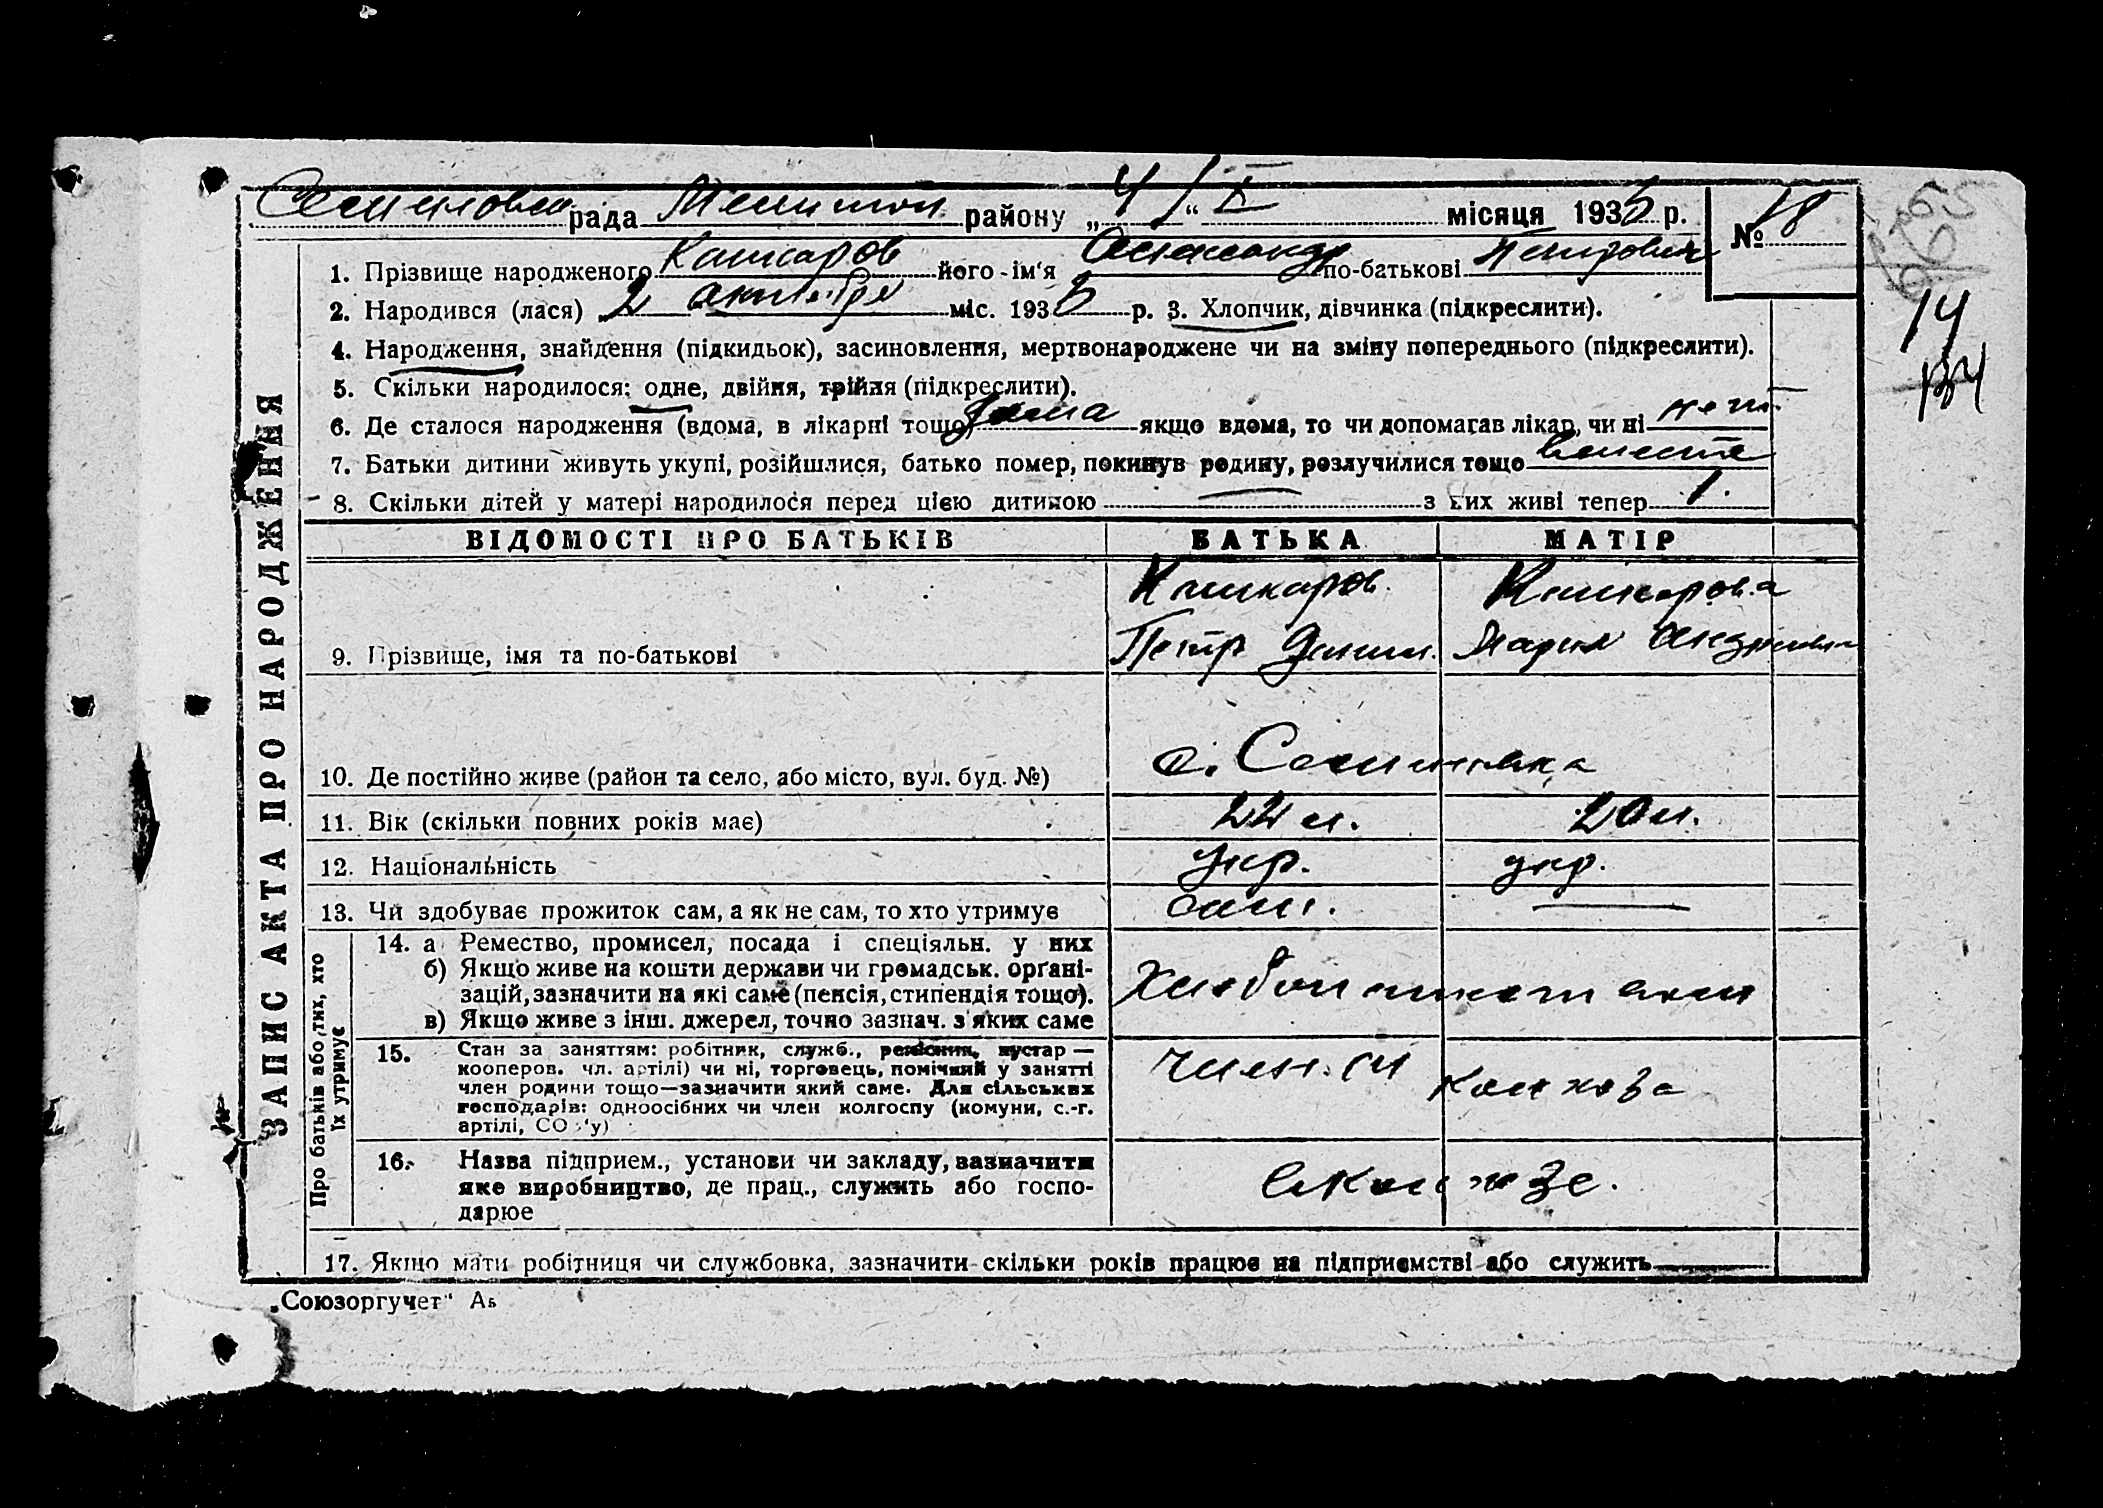 рада района району „4“ X місяця 1935 р. № 18
1. Прізвище народженого Кашкаров його-ім'я Александр по-батькові Петрович
2. Народився (лася) „2 октября міс. 1935 р. 3. Хлопчик, дівчинка (підкреслити).
4. Народження, знайдення (підкидьок), засиновлення, мертвонароджене чи на зміну попереднього (підкреслити).
14
5. Скільки народилося: одне, двійня, трійня (підкреслити).
134
6. Де сталося народження (вдома, в лікарні тощо) дома якщо вдома, то чи допомагав лікар, чи ні нет
7. Батьки дитини живуть укупі, розійшлися, батько помер, покинув родину, розлучилися тощо вместе
8. Скільки дітей у матері народилося перед цією дитиною — з них живі тепер 1.
ЗАПИС АКТА ПРО НАРОДЖЕННЯ
ВІДОМОСТІ ПРО БАТЬКІВ БАТЬКА МАТІР
Кашкаров Кашкарова
9. Прізвище, імя та по-батькові Петр Мария
10. Де постійно живе (район та село, або місто, вул. буд. №) с.
11. Вік (скільки повних років має) 22 л. 20 л.
12. Національність укр. укр.
13. Чи здобуває прожиток сам, а як не сам, то хто утримує сам. —
Про батьків або тих, хто
їх утримує
14. а Ремество, промисел, посада і спеціяльн. у них
б) Якщо живе на кошти держави чи громадськ. органі-
зацій, зазначити на які саме (пенсія, стипендія тощо).
в) Якщо живе з інш. джерел, точно зазнач. з яких саме
15. Стан за заняттям: робітник, служб., ремісник, кустар —
кооперов. чл. артілі) чи ні, торговець, помічний у занятті
член родини тощо—зазначити який саме. Для сільських
господарів: одноосібних чи член колгоспу (комуни, с.-г.
артілі, СО 'у)
член колхоза
16. Назва підприєм., установи чи закладу, зазначити
яке виробництво, де прац., служить або госпо-
дарює
17. Якщо мати робітниця чи службовка, зазначити скільки років працює на підприємстві або служить
„Союзоргучет"